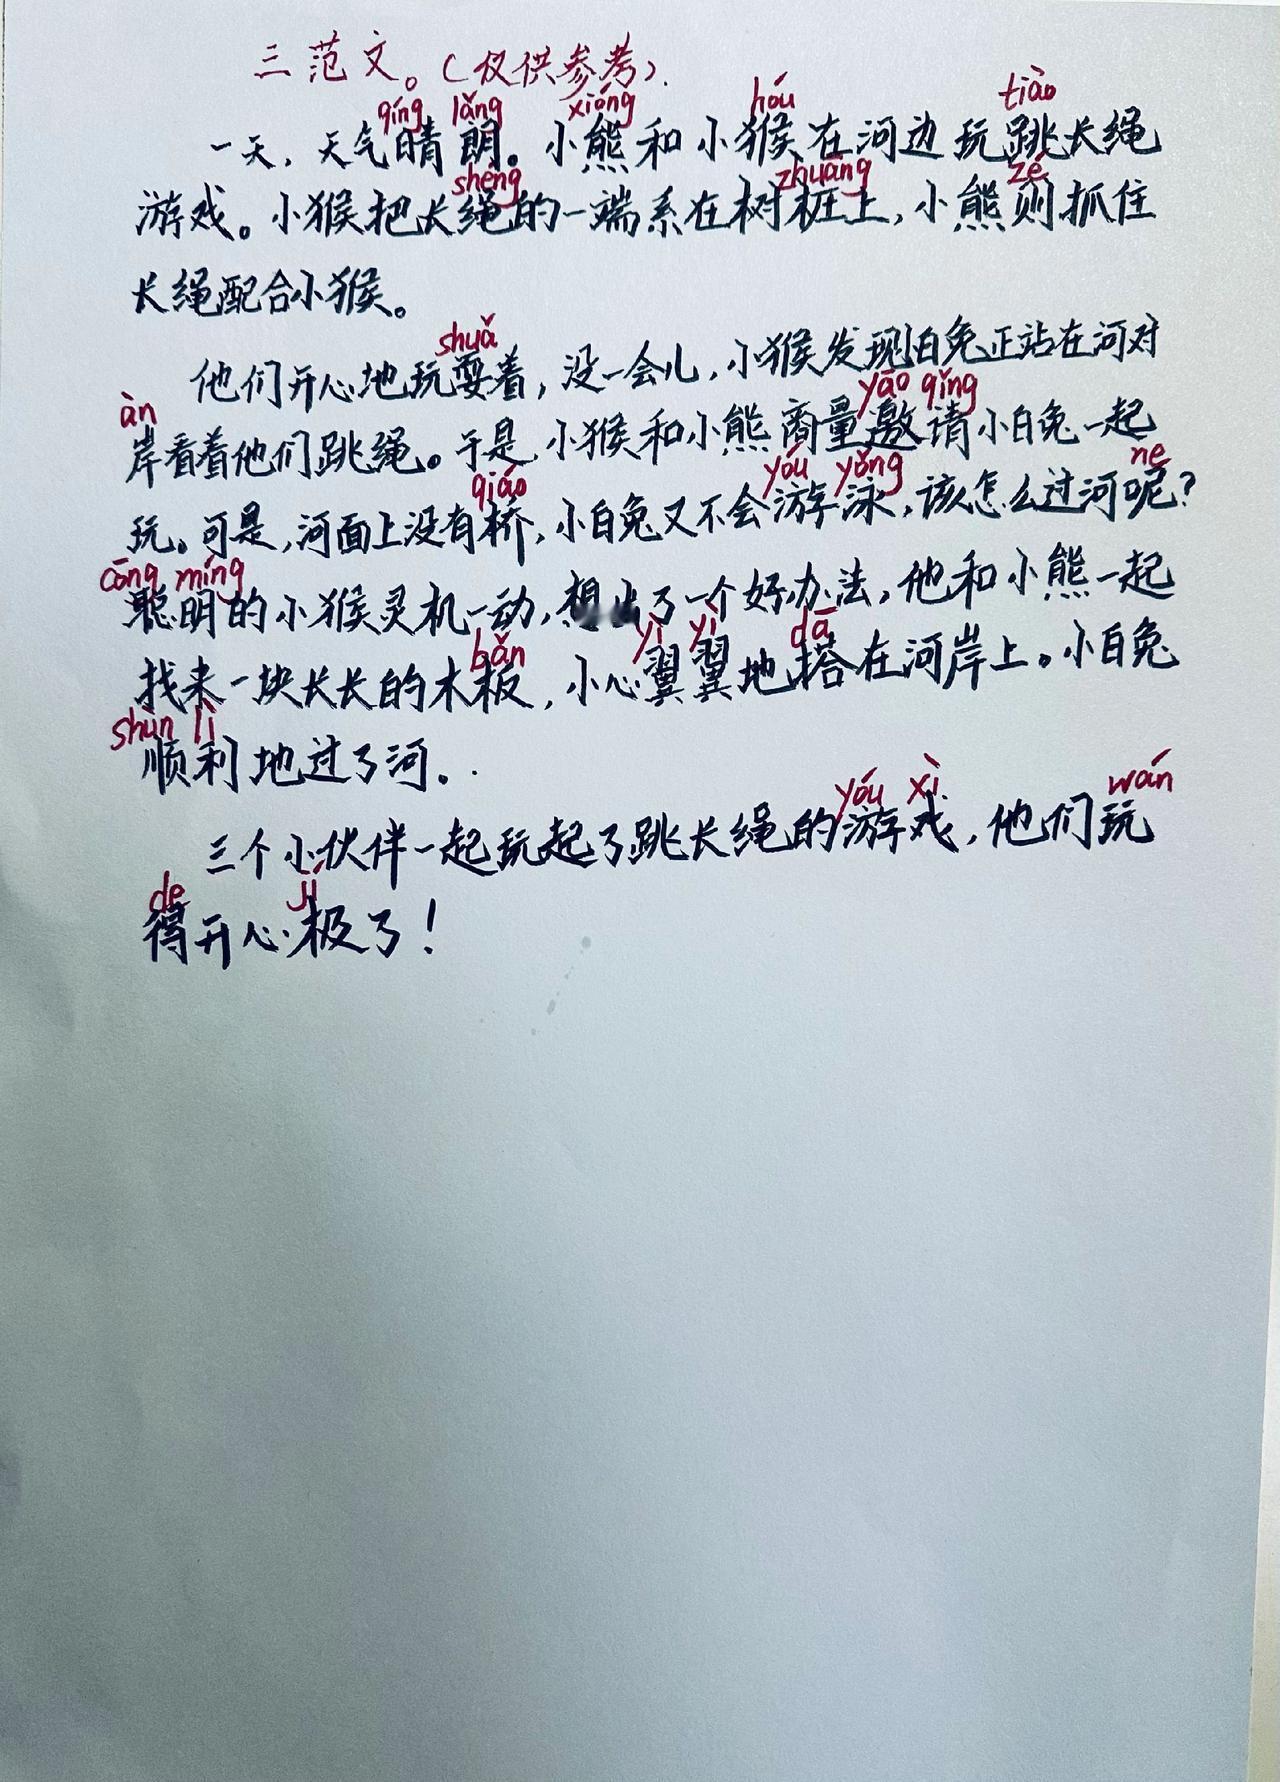 三范文。(仅供参考).
qíng lǎng xióng hóu tiào
一天，天气晴朗。小熊和小猴在河边玩跳长绳
shéng zhuāng zé
游戏。小猴把长绳的一端系在树桩上，小熊则抓住
长绳配合小猴。
shuǎ
他们开心地玩耍着，没一会儿，小猴发现白兔正站在河对
àn yāo qǐng
岸看着他们跳绳。于是，小猴和小熊商量邀请小白兔一起
qiáo yóu yǒng ne
玩。可是，河面上没有桥，小白兔又不会游泳，该怎么过河呢？
cōng míng
聪明的小猴灵机一动，想出了一个好办法，他和小熊一起
bǎn yì yì dā
找来一块长长的木板，小心翼翼地搭在河岸上。小白兔
shùn lì
顺利地过了河。.
yóu xì wán
三个小伙伴一起玩起了跳长绳的游戏，他们玩
de jí
得开心极了！